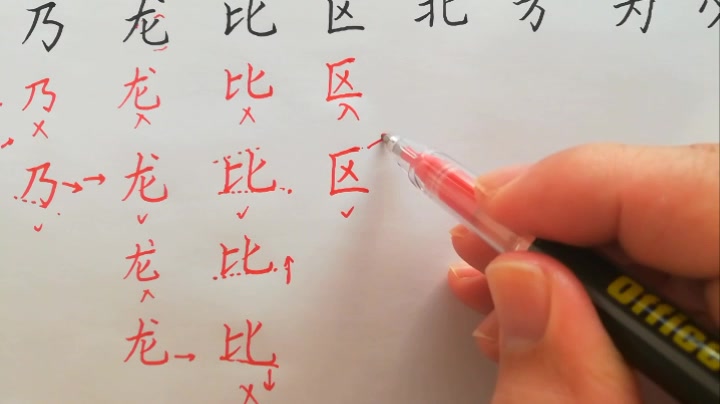 乃 龙 比 区 北 方 为
乃 龙 比 区
乃 龙 比 区
龙 比
龙 比
office